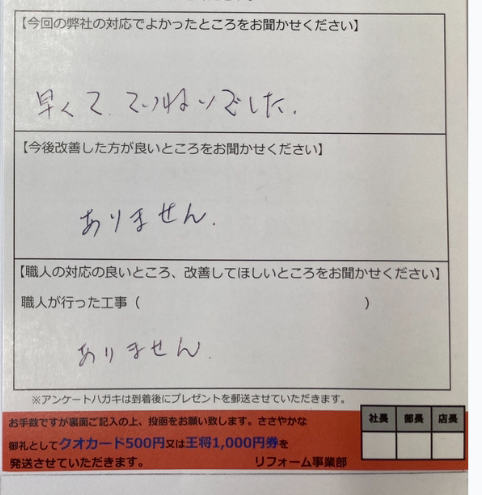 【今回の弊社の対応でよかったところをお聞かせください】
早くて、ていねいでした.
【今後改善した方が良いところをお聞かせください】
ありません.
【職人の対応の良いところ、改善してほしいところをお聞かせください】
職人が行った工事（　　　　　　　　　　）
ありません.
※アンケートハガキは到着後にプレゼントを郵送させていただきます。
お手数ですが裏面ご記入の上、投函をお願い致します。ささやかな
御礼としてクオカード500円又は王将1,000円券を
発送させていただきます。　リフォーム事業部
社長 部長 店長